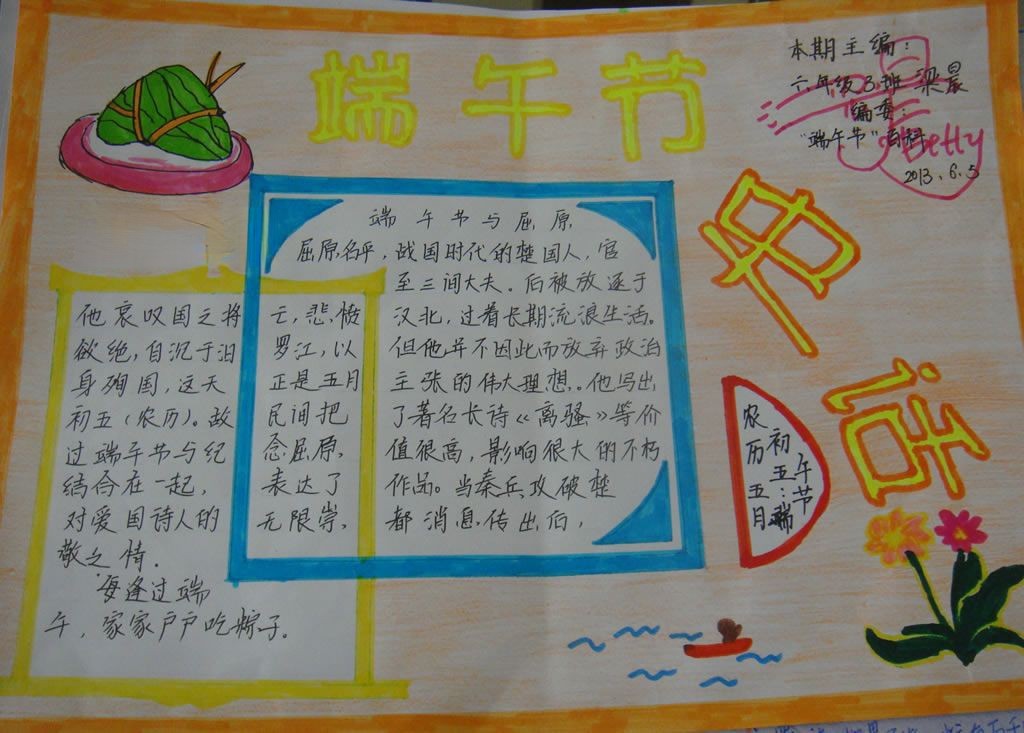 端午节
本期主编：
六年级3班 梁晨
编委：
"端午节"百科
Betty
2013.6.5
史话
端午节与屈原
屈原名平，战国时代的楚国人，官
至三闾大夫。后被放逐于
汉北，过着长期流浪生活。
但他并不因此而放弃政治
主张的伟大理想。他写出
了著名长诗《离骚》等价
值很高，影响很大的不朽
作品。当秦兵攻破楚
都消息传出后，
他哀叹国之将亡，悲愤
欲绝，自沉于汨罗江，以
身殉国，这天正是五月
初五（农历）。故民间把
过端午节与纪念屈原，
结合在一起，表达了
对爱国诗人的无限崇
敬之情.
每逢过端
午，家家户户吃粽子。
农历五月
初五：端
午节